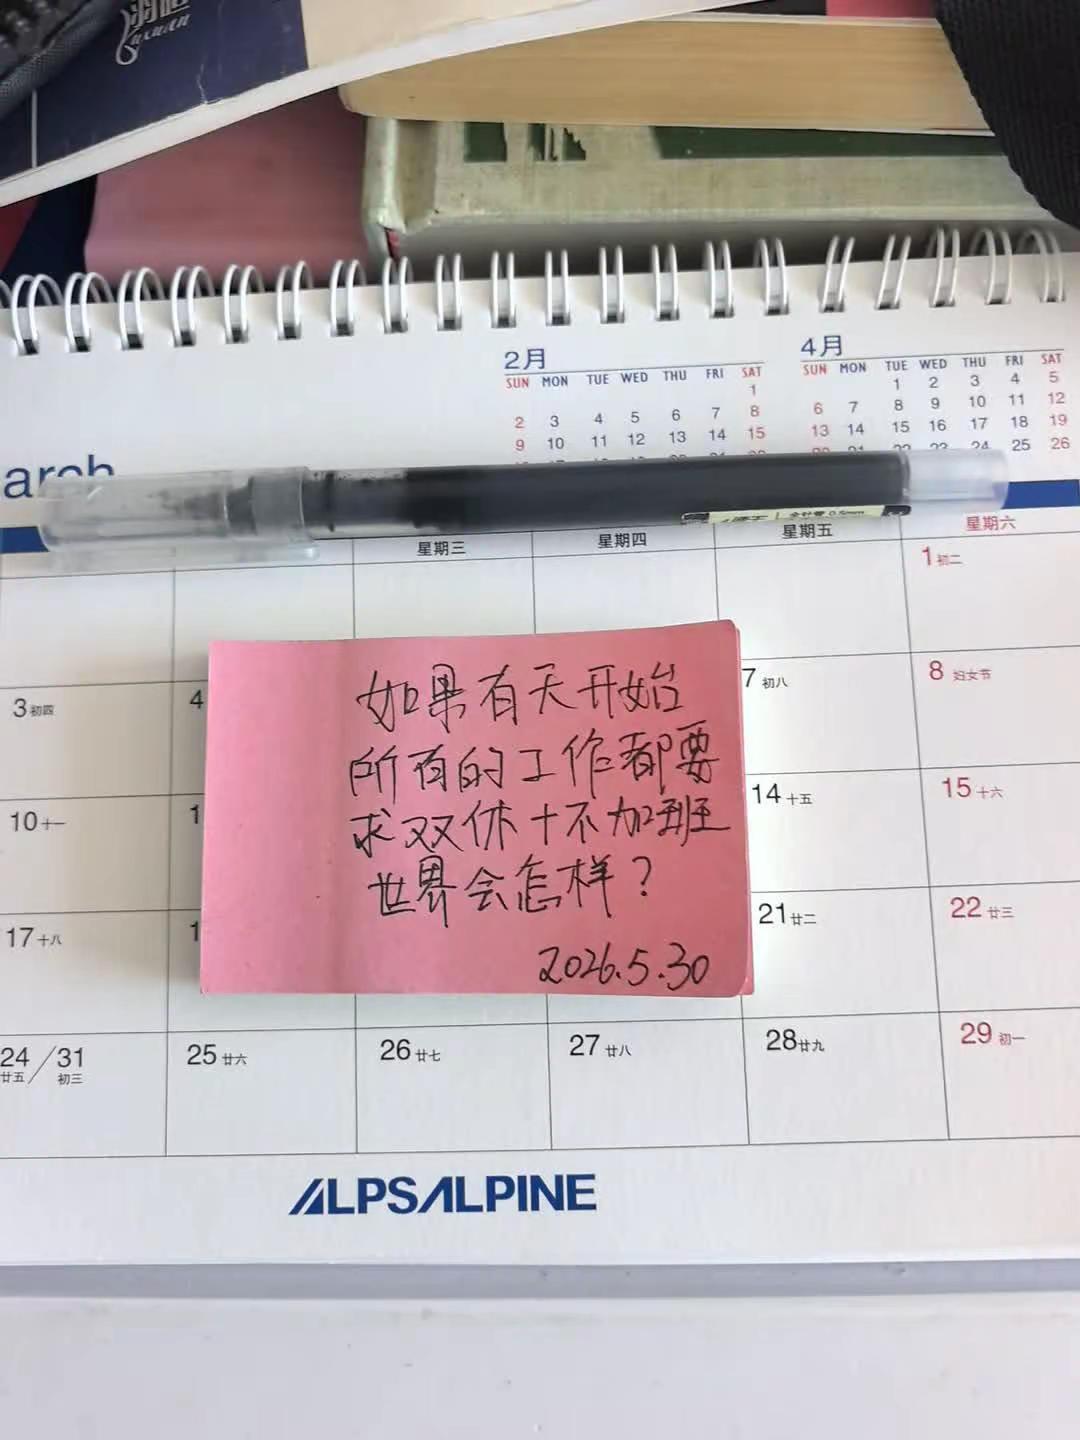 2月
SUN MON TUE WED THU FRI SAT
1
2 3 4 5 6 7 8
9 10 11 12 13 14 15
4月
SUN MON TUE WED THU FRI SAT
1 2 3 4 5
6 7 8 9 10 11 12
13 14 15 16 17 18 19
25 26
arch
0.5mm
星期三 星期四 星期五 星期六
1 初二
3 初四
4
7 初八
8 妇女节
10 十一
14 十五
15 十六
17 十八
21 廿二
22 廿三
24/31
廿五 初三
25 廿六
26 廿七
27 廿八
28 廿九
29 初一
如果有天开始
所有的工作都要
求双休+不加班
世界会怎样?
2026.5.30
ALPSALPINE